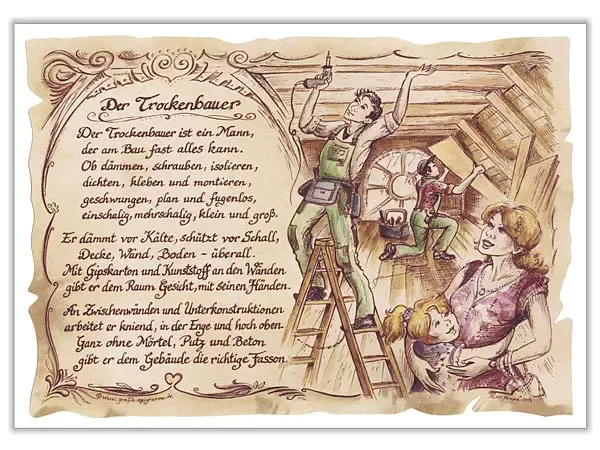 Der Trockenbauer
Der Trockenbauer ist ein Mann,
der am Bau fast alles kann.
Ob dämmen, schrauben, isolieren,
dichten, kleben und montieren,
geschwungen, plan und fugenlos,
einschalig, mehrschalig, klein und groß.
Er dämmt vor Kälte, schützt vor Schall,
Decke, Wand, Boden - überall.
Mit Gipskarton und Kunststoff an den Wänden
gibt er dem Raum Gesicht, mit seinen Händen.
An Zwischenwänden und Unterkonstruktionen
arbeitet er kniend, in der Enge und hoch oben.
Ganz ohne Mörtel, Putz und Beton
gibt er dem Gebäude die richtige Fasson.
©www.grafik-epigramme.de